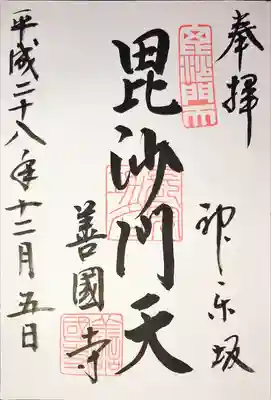 奉拝
神楽坂
毘沙門天
善國寺
平成二十八年十二月五日